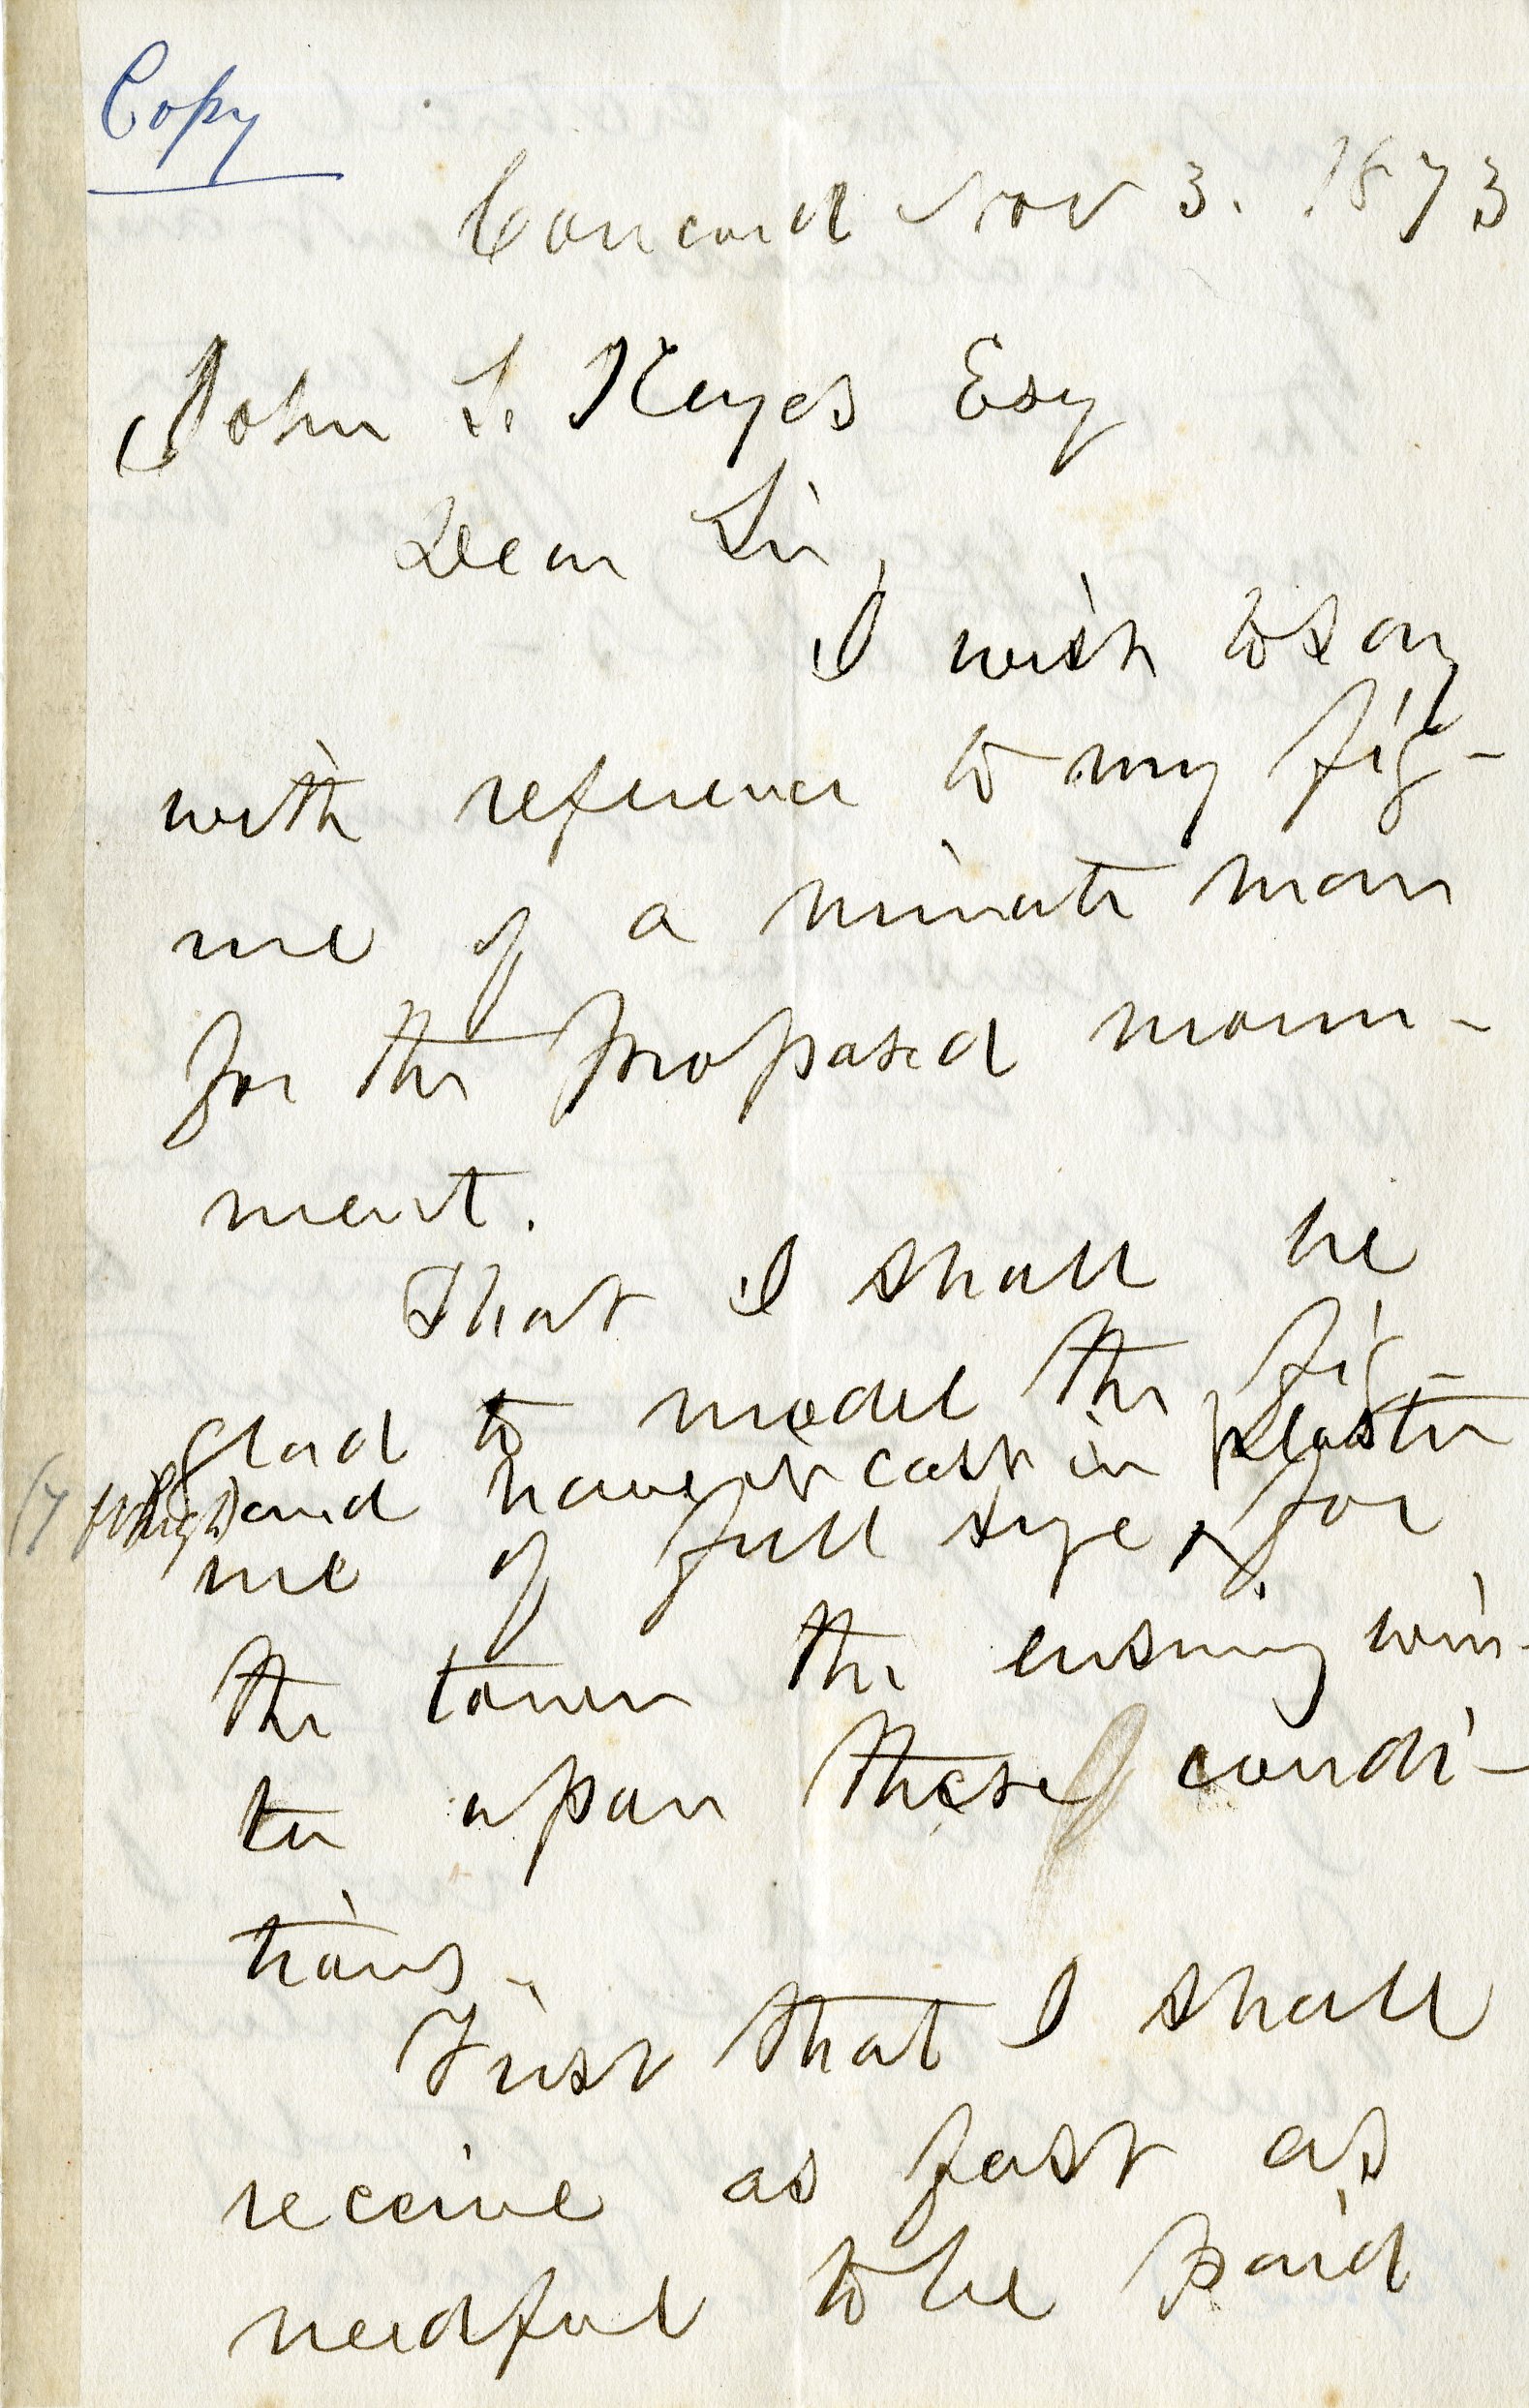 Copy
Concord Nov 3. 1873
John S. Keyes Esq
Dear Sir,
I wish to say
with reference to my fig-
ure of a minute man
for the proposed monu-
ment.
That I shall be
glad to model the fig-
(7 ft high) and have it cast in plaster
ure of full size, for
the town the ensuing win-
ter upon these condi-
tions.
First that I shall
receive as fast as
needful to be paid